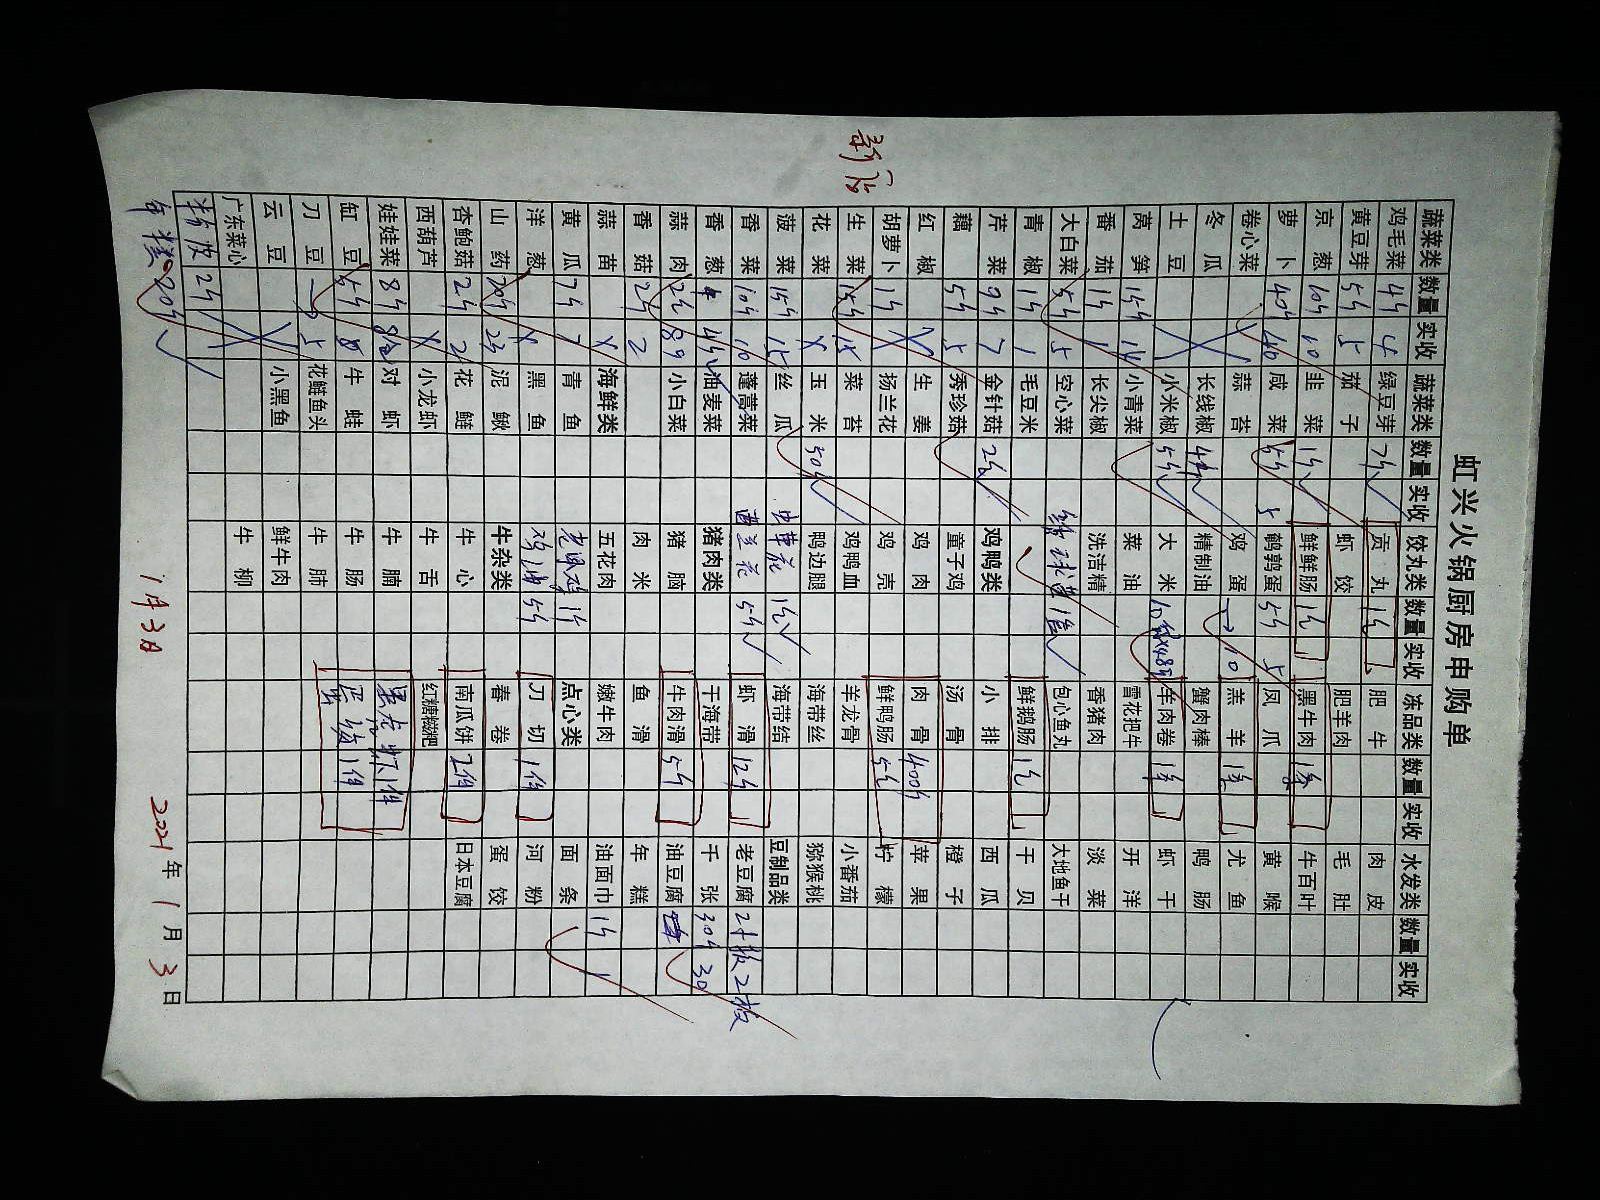 虹兴火锅厨房申购单
新店
蔬菜类 数量 实收 蔬菜类 数量 实收 饺丸类 数量 实收 冻品类 数量 实收 水发类 数量 实收
鸡毛菜 4斤 4 绿豆芽 7斤√ 贡丸 1包 肥牛 肉皮
黄豆芽 5斤 5 茄子 虾饺 肥羊肉 毛肚
京葱 10斤 10 韭菜 1斤√ 鲜鲜肠 1包 黑牛肉 1条 牛百叶
萝卜 40斤 40 咸菜 5斤 5 鹌鹑蛋 5斤 5 凤爪 黄喉
卷心菜 蒜苔 鸡蛋 10 羔羊 1条 尤鱼
冬瓜 长线椒 4斤√ 精制油 蟹肉棒 鸭肠
土豆 小米椒 5斤√ 大米 羊肉卷 1条 虾干
莴笋 15斤 14 小青菜 菜油 雪花把牛 开洋
香茄 1斤 1 长尖椒 洗洁精 香猪肉 淡菜
大白菜 5斤 5 空心菜 包心鱼丸 大地鱼干
青椒 1斤 1 毛豆米 鲜鹅肠 1包 干贝
芹菜 9斤 7 金针菇 2包√ 鸡鸭类 小排 西瓜
藕 5斤 5 秀珍菇 童子鸡 汤骨 橙子
红椒 X 生姜 鸡肉 肉骨 400斤 苹果
胡萝卜 1斤 扬兰花 鸡壳 鲜鸭肠 5包 柠檬
生菜 15斤 15 菜苔 鸡鸭血 羊龙骨 小番茄
花菜 X 玉米 30斤√ 鸭边腿 海带丝 猕猴桃
菠菜 15斤 15 丝瓜 虫草花 1斤√ 海带结 豆制品类
香菜 10斤 10 蓬蒿菜 西兰花 5斤√ 虾滑 12斤 老豆腐 2板 2板
香葱 4斤√ 油麦菜 猪肉类 干海带 千张 30斤 30
蒜肉 2斤 小白菜 猪脑 牛肉滑 5斤 油豆腐
香菇 2斤 2 肉米 鱼滑 年糕
蒜苗 X 海鲜类 五花肉 嫩牛肉 油面巾 1斤 1
黄瓜 7斤 7 青鱼 老母鸡 1斤 点心类 面条
洋葱 X 黑鱼 鸡油 5斤 刀切 1件 河粉
山药 20斤 泥鳅 牛杂类 春卷 蛋饺
杏鲍菇 2斤 2 花鲢 牛心 南瓜饼 2件 日本豆腐
西葫芦 X 小龙虾 牛舌 红糖糍粑
娃娃菜 8斤 对虾 牛腩 黑虎虾 1件
缸豆 5斤 8 牛蛙 牛肠 蛋饺 1件
刀豆 5 花鲢鱼头 牛肺
云豆 X 小黑鱼 鲜牛肉
广东菜心 牛柳
2斤
年糕 20斤√
1月3日 2021年1月3日